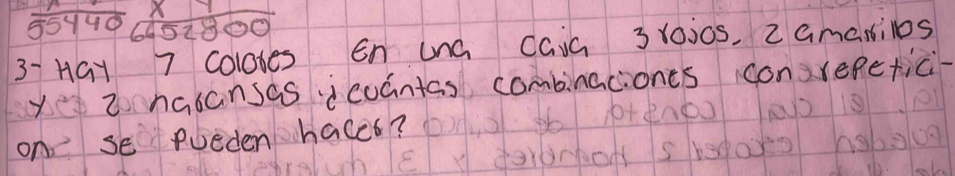 55440 6652800
3- HaY 7 colores En una caja 3 rojos, 2 amarillos
y 2 naranjas ¿cuántas combinaciones con repetici-
on se pueden hacer?